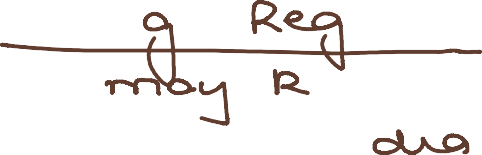 g Reg
may R
dia